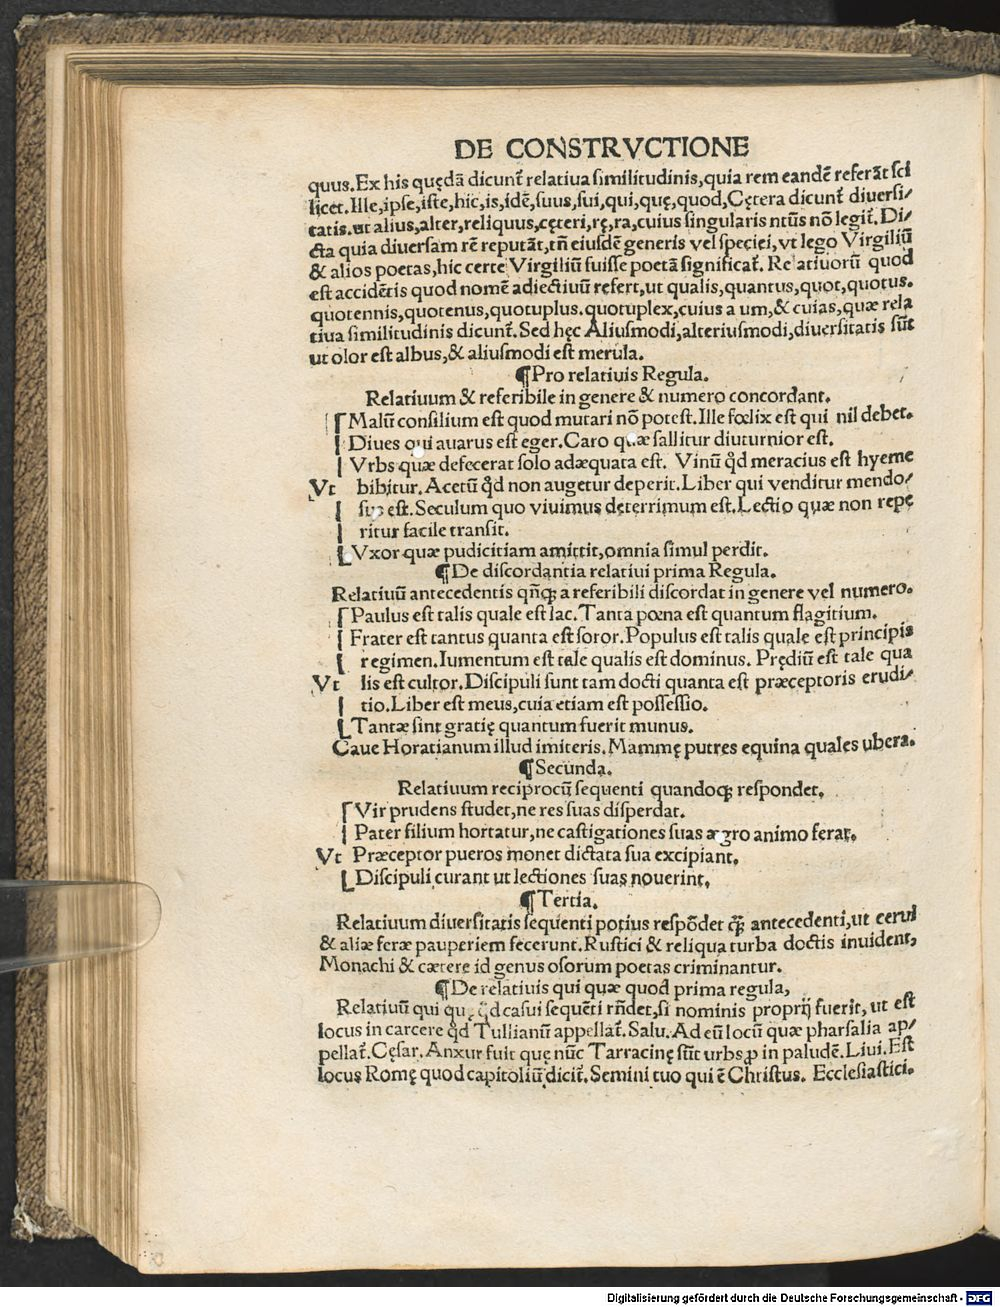 DE CONSTRVCTIONE
quus. Ex his quędā dicunť relatiua ſimilitudinis, quia rem eandē referāt ſci
licet. Ille, ipſe, iſte, hic, is, idē, ſuus, ſui, qui, quę, quod, Cętera dicunť diuerſi/
tatis. ut alius, alter, reliquus, cęteri, rę, ra, cuius ſingularis ntūs nō legiť. Di/
cta quia diuerſam rē reputāt, tn̄ eiuſdē generis vel ſpeciei, vt lego Virgiliū
& alios poetas, hic certe Virgiliū fuiſſe poetā ſignificať. Relatiuorū quod
eſt accidētis quod nomē adiectiuū refert, ut qualis, quantus, quot, quotus.
quotennis, quotenus, quotuplus. quotuplex, cuius a um, & cuias, quæ rela
tiua ſimilitudinis dicunť. Sed hęc Aliuſmodi, alteriuſmodi, diuerſitatis ſūt
ut olor eſt albus, & aliuſmodi eſt merula.
¶Pro relatiuis Regula.
Relatiuum & referibile in genere & numero concordant.
Malū conſilium eſt quod mutari nō poteſt. Ille fœlix eſt qui nil debet.
Diues qui auarus eſt eger. Caro quæ ſallitur diuturnior eſt.
Vrbs quæ defecerat ſolo adæquata eſt. Vinū qđ meracius eſt hyeme
Vt bibitur. Acetū qđ non augetur deperit. Liber qui venditur mendo/
ſus eſt. Seculum quo viuimus deterrimum eſt. Lectio quæ non repe
ritur facile tranſit.
Vxor quæ pudicitiam amittit, omnia ſimul perdit.
¶De diſcordantia relatiui prima Regula.
Relatiuū antecedentis qn̄qꝫ a referibili diſcordat in genere vel numero.
Paulus eſt talis quale eſt lac. Tanta pœna eſt quantum flagitium.
Frater eſt tantus quanta eſt ſoror. Populus eſt talis quale eſt principis
regimen. Iumentum eſt tale qualis eſt dominus. Prędiū eſt tale qua
Vt lis eſt cultor. Diſcipuli ſunt tam docti quanta eſt præceptoris erudi/
tio. Liber eſt meus, cuia etiam eſt poſſeſſio.
Tantæ ſint gratię quantum fuerit munus.
Caue Horatianum illud imiteris. Mammę putres equina quales ubera.
¶Secunda.
Relatiuum reciprocū ſequenti quandoqꝫ reſpondet.
Vir prudens ſtudet, ne res ſuas diſperdat.
Pater filium hortatur, ne caſtigationes ſuas ægro animo ferat.
Vt Præceptor pueros monet dictata ſua excipiant.
Diſcipuli curant ut lectiones ſuas nouerint.
¶Tertia.
Relatiuum diuerſitatis ſequenti potius reſpōdet qꝫ̄ antecedenti, ut cerui
& aliæ feræ pauperiem fecerunt. Ruſtici & reliqua turba doctis inuident,
Monachi & cætere id genus oſorum poetas criminantur.
¶De relatiuis qui quæ quod prima regula,
Relatiuū qui quę qđ caſui ſequēti rn̄det, ſi nominis proprij fuerit, ut eſt
locus in carcere qđ Tullianū appellať. Salu. Ad eū locū quæ pharſalia ap/
pellať. Cęſar. Anxur fuit quę nūc Tarracinę ſūt urbs ꝓ in paludē. Liui. Eſt
locus Romę quod capitoliū diciť. Semini tuo qui ē Chriſtus. Eccleſiaſtici.
Digitalisierung gefördert durch die Deutsche Forschungsgemeinschaft - DFG